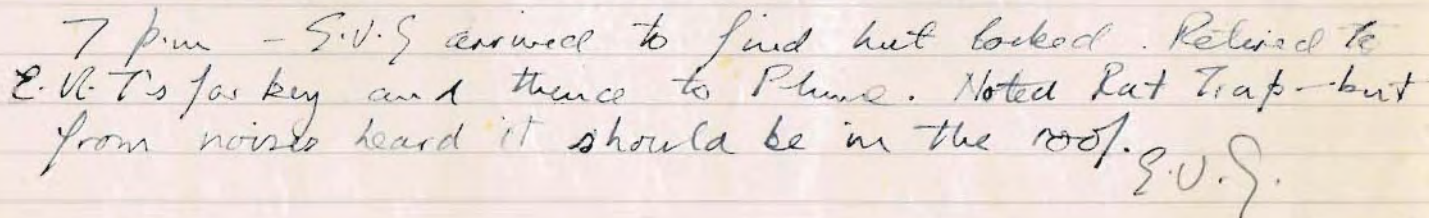 7 p.m - S.V.G arrived to find hut locked. Retired to
E.R.T's for key and thence to Plume. Noted Rat Trap - but
from noises heard it should be in the roof.
S.V.G.